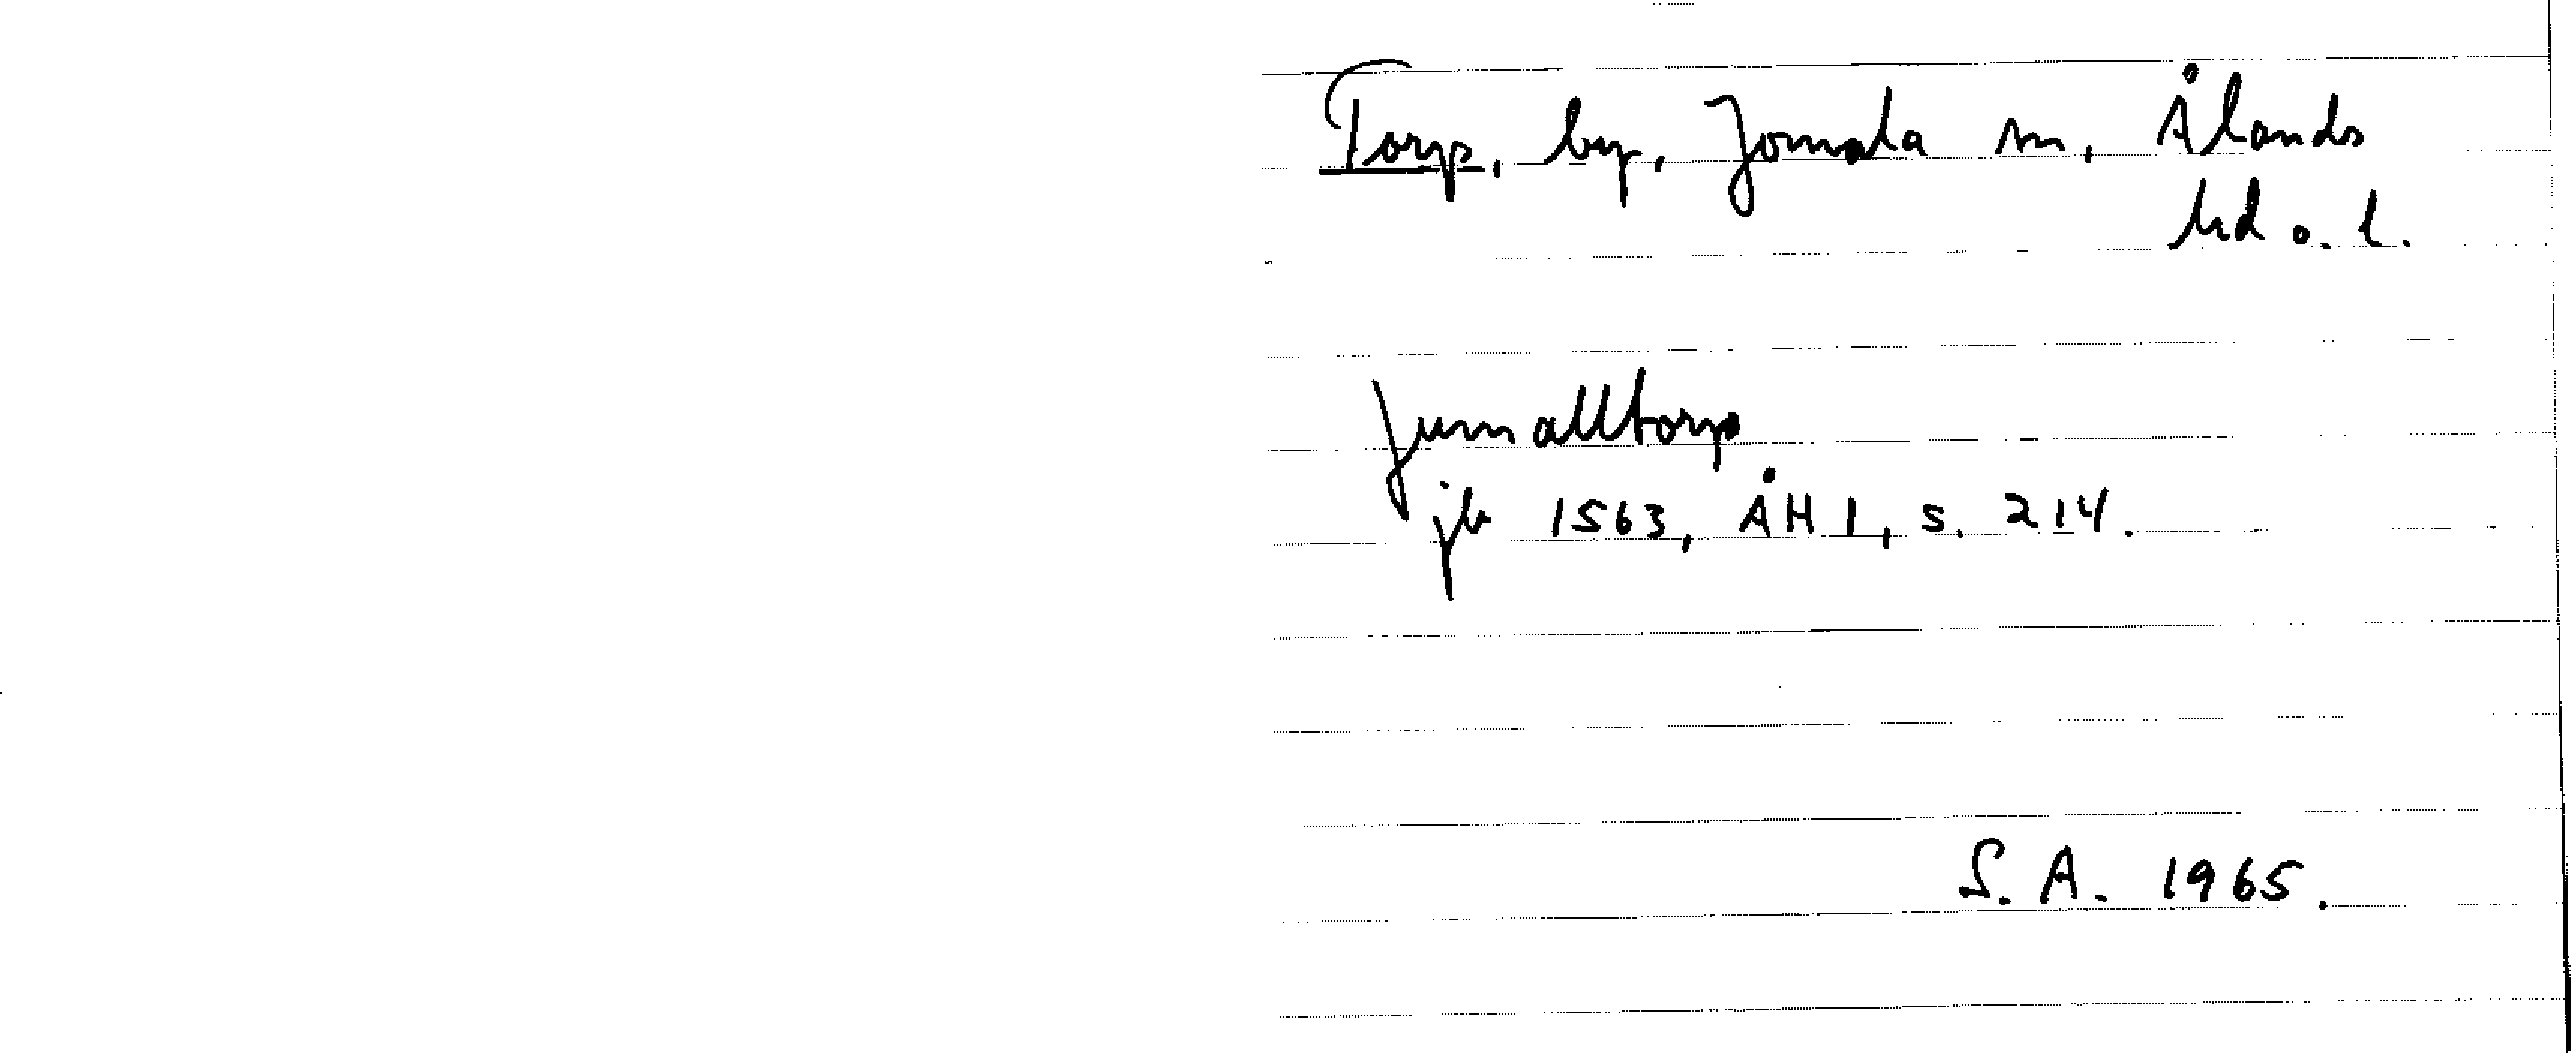 Torp, by, Jomala sn, Ålands
hd o. l.
Jumalltorp
jb 1563, ÅH I, s. 214.
S. A. 1965.